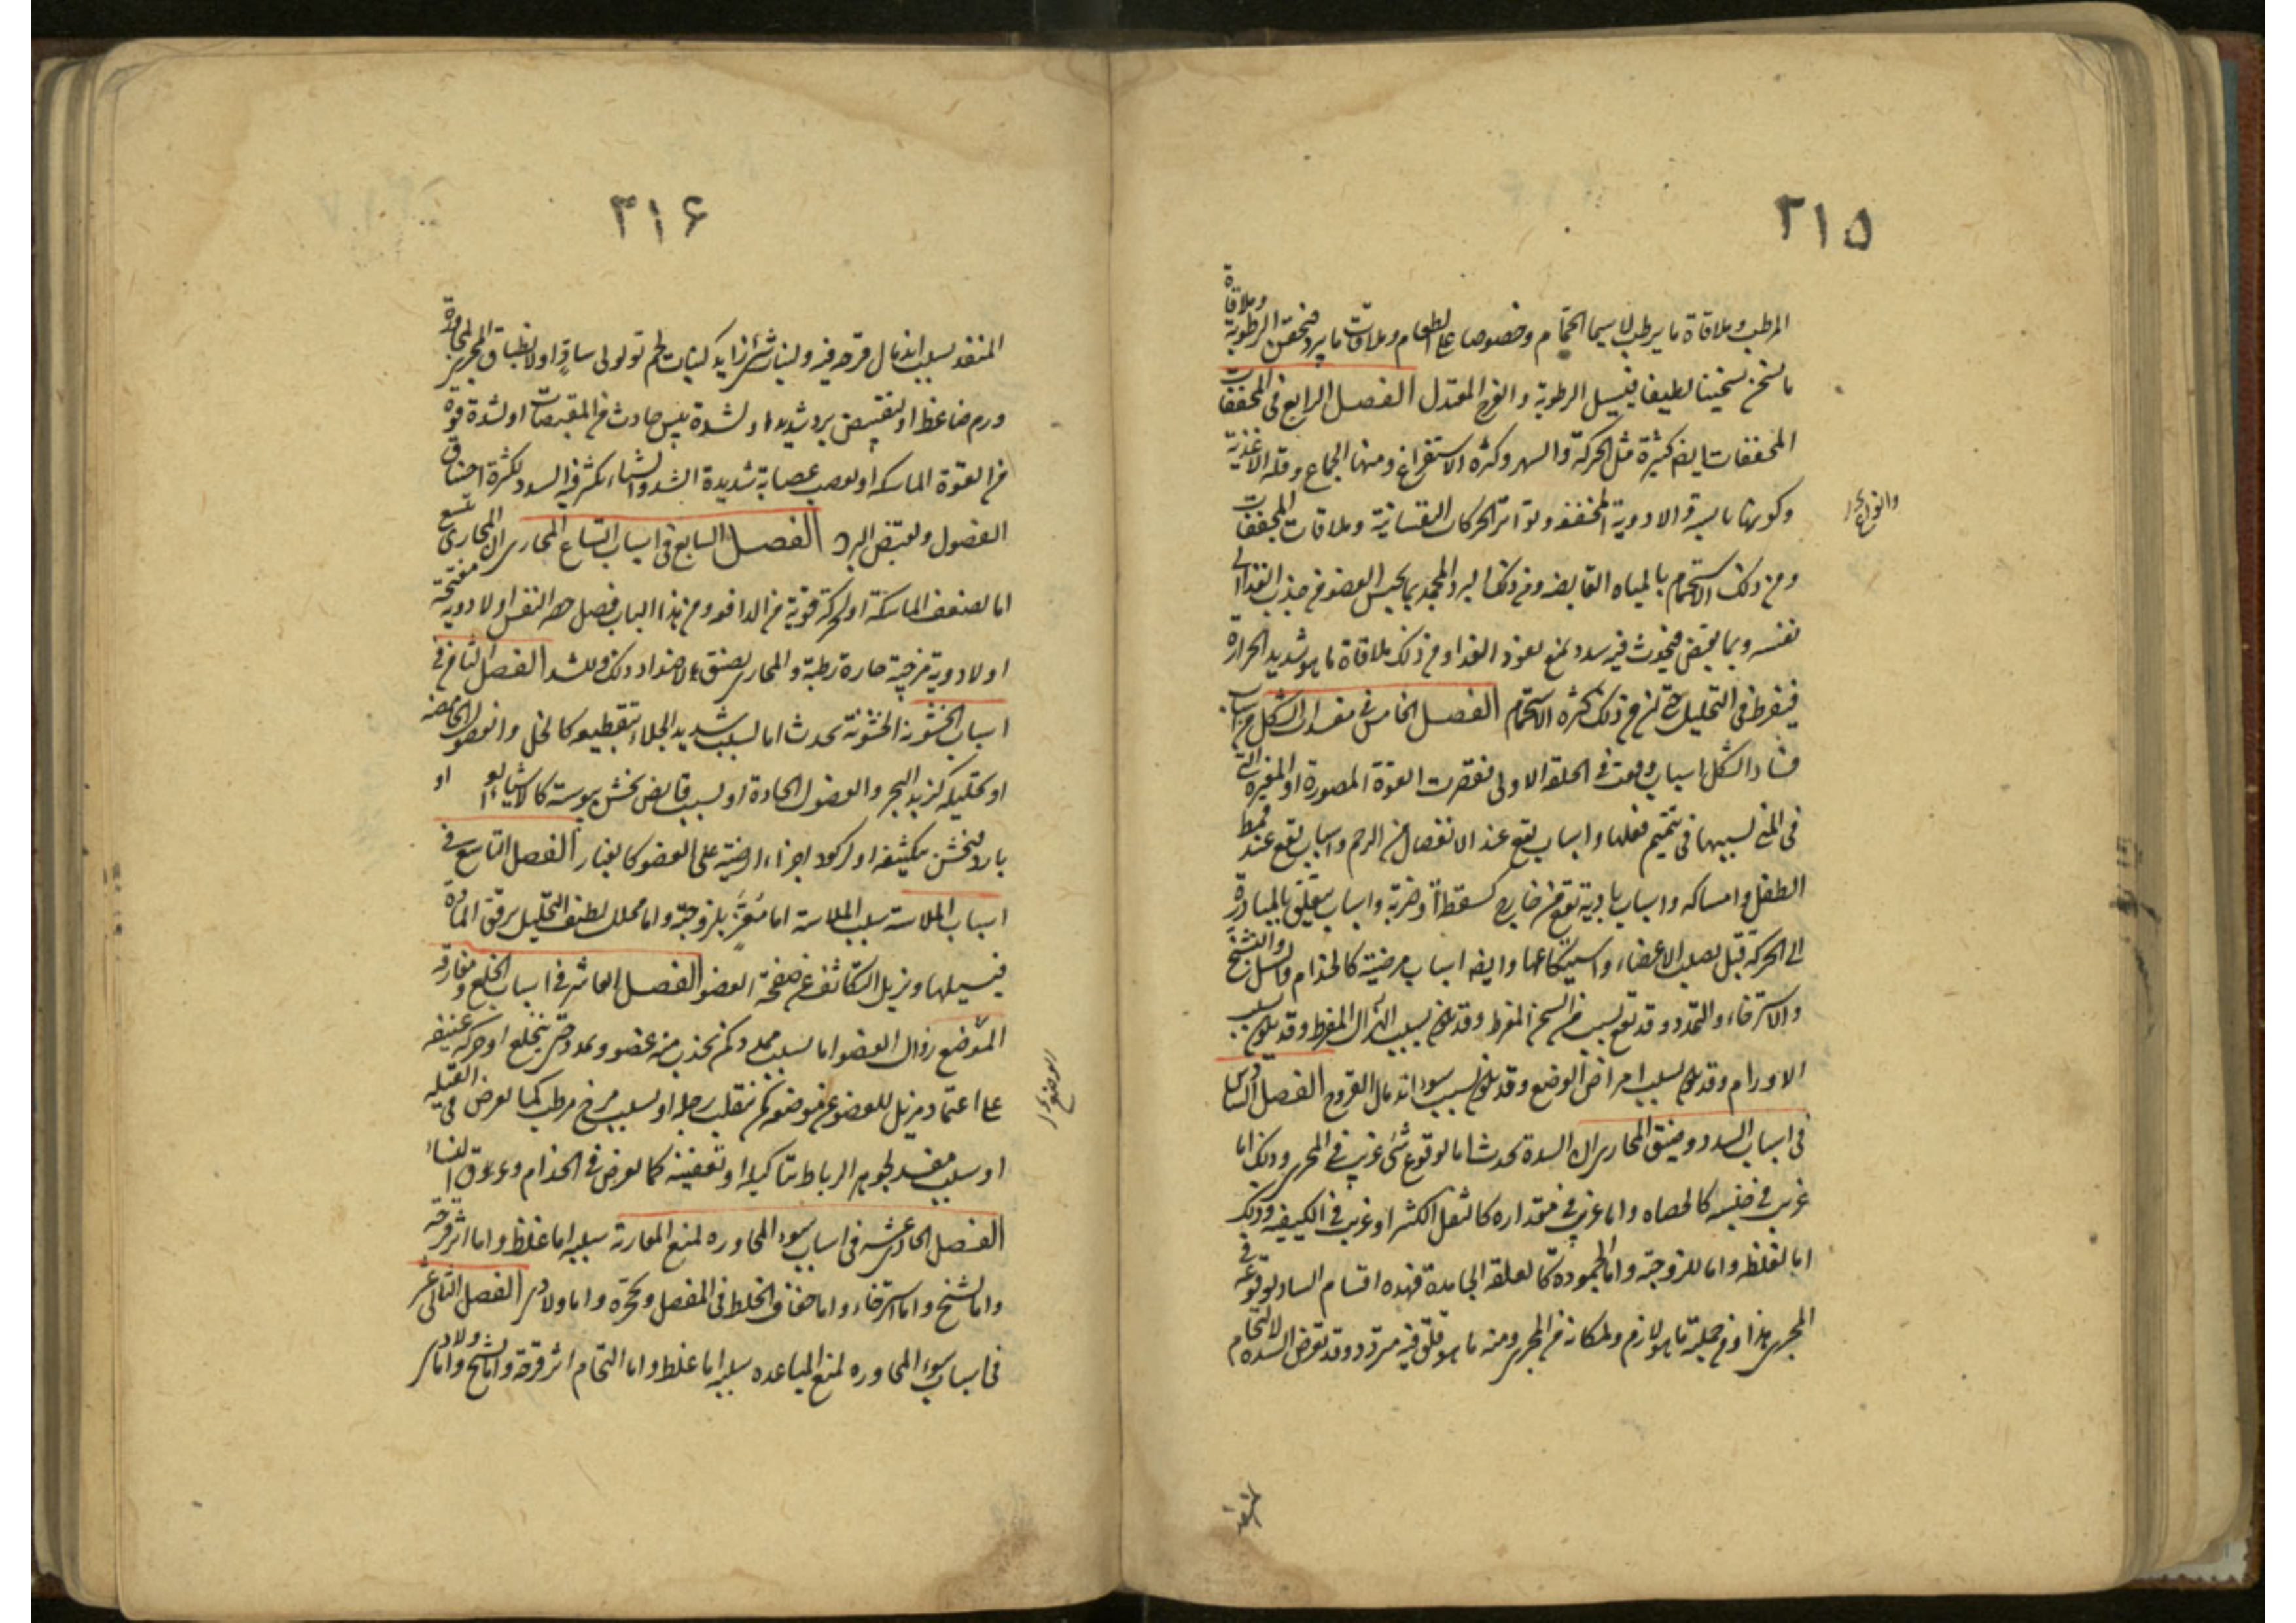 ٢١٥
المرطب وملاقاة ما يرطب لا سيما الحمام وخصوصا على الطعام وملاقات ما يبرد فيحقن الرطوبة وملاقاة
ما يسخن تسخينا لطيفا فيسيل الرطوبة والفرح المعتدل الفصل الرابع فى المجففات
المجففات ايضا كثيرة مثل الحركة والسهر وكثرة الاستفراغ ومنها الجماع وقلة الاغذية
وكونها يابسة والادوية المجففة وتواتر الحركات النفسانية وملاقات المجففات
ومن ذلك الاستحمام بالمياه القابضة ومن ذلك البرد المجمد بما يحبس العضو من جذب الغذا الى
نفسه وبما يقبض فيحدث فيه سدد تمنع نفوذ الغذا ومن ذلك ملاقاة ما هو شديد الحرارة
فيفرط فى التحليل حتى ان من ذلك كثرة الاستحمام الفصل الخامس فى مفسدات الشكل من اسباب
فساد الشكل اسباب وقعت فى الخلقة الاولى فقصرت القوة المصورة او المغيرة التى
فى المنى لسببها فى تتميم فعلها واسباب تقع عند الانفصال من الرحم واسباب تقع عند قمط
الطفل وامساكه واسباب بادية تقع من خارج كسقطة او ضربة واسباب تتعلق بالمبادرة
الى الحركة قبل تصلب الاعضاء واستيكاعها وايضا اسباب مرضية كالجذام والسل والتشنج
والاسترخاء والتمدد وقد تقع بسبب من السمن المفرط وقد يكون بسبب الهزال المفرط وقد يكون بسبب
الاورام وقد يكون بسبب امراض الوضع وقد يكون بسبب سوء اندمال القروح الفصل السادس
فى اسباب السدد وضيق المجارى ان السدة تحدث اما لوقوع شئ غريب فى المجرى وذلك اما
غريب فى جنسه كالحصاه واما غريب فى مقداره كالثفل الكثير او غريب فى الكيفية وذلك
اما لغلظه واما للزوجته واما لجموده كالعلقة الجامدة فهذه اقسام الساد لوقوعه فى
المجرى هذا ومن جملته ما هو لازم لمكانه فى المجرى ومنه ما هو قلق فيه متردد وقد تعرض السدة لالتحام
٣١۶
المنفذ بسبب اندمال قرحه فيه ولنبات شئ زايد كنبات لحم ثولولى ساد او لانطباق المجرى لمجاورة
ورم ضاغط او لتقبيض برد شديد او لشدة يبس حادث من المقبضات او لشدة قوة
من القوة الماسكه او لعصب عصابة شديدة الشد والشتاء يكثر فيه السدد لكثرة احتقان
الفضول ولقبض البرد الفصل السابع فى اسباب اتساع المجارى ان المجارى تتسع
اما لضعف الماسكة او لحركة قوية من الدافعة ومن هذا الباب فصل حصر النفس او لادوية مفتحة
او لادوية مرخية حارة رطبة والمجارى تضيق لاضداد ذلك وللسدد الفصل الثامن فى
اسباب الخشونة الخشونة تحدث اما لسبب شديد الجلاء بتقطيعه كالخل والفضول الحامضة
او تحليله كزبد البحر والفضول الحادة او لسبب قابض يخشن بيبوسته كالاشياء او
بارد فيخشن بتكثيفه او لركود اجزاء ارضية على العضو كالغبار الفصل التاسع فى
اسباب الملاسة سبب الملاسة اما مُغَرٍّ بلزوجته واما محلل لطيف التحليل يرقق المادة
فيسيلها ويزيل التكاثف عن صفحة العضو الفصل العاشر فى اسباب الخلع ومفارقة
الموضع زوال العضو اما لسبب ممدد كمن تجذب منه عضو وتمدد حتى ينخلع او حركة عنيفة
على اعتماد مزيل للعضو عن موضعه كمن تنقلب رجله او لسبب مرخ مرطب كما يعرض فى القيلة
او سبب مفسد لجوهر الرباط بتأكيله او تعفينه كما يعرض فى الجذام وعرق النساء
الفصل الحادى عشر فى اسباب سوء المجاوره لمنع المقاربة سببه اما غلظ واما اثر قرحة
واما تشنج واما استرخاء واما جفاف الخلط فى المفصل وتحجره واما ولادى الفصل الثانى عشر
فى اسباب سوء المجاوره لمنع المباعده سببه اما غلظ واما التحام اثر قرحة واما تشنج واما ولادى